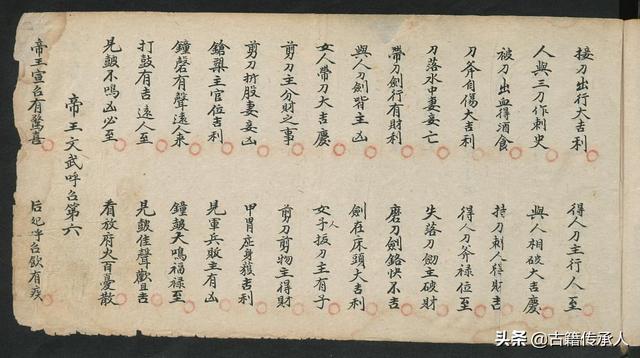 接刀出行大吉利 得人刀主行人至
人與三刀作刺史 與人相被大吉慶
被刀出血得酒食 持刀刺人得財吉
刀斧自傷大吉利 得人刀斧禄位至
刀落水中妻妾亡 失落刀劒主破財
帶刀劍行有財利 磨刀劍快不吉
與人刀劍皆主凶 劍在床頭大吉利
女人帶刀大吉慶 女子人振刀主有子
剪刀主分財之事 剪刀剪物主得財
剪刀折股妻妾凶 甲冑在身獲吉利
鎗主官位吉利 見軍兵敗主有凶
鐘磬有聲遠人來 鐘皷大鳴福禄至
打皷有吉遠人至 見皷佳聲歡且吉
見皷不鳴凶必至 看放府火百憂散
帝王文武呼召第六
帝王宣召有驚喜 后妃呼召飲有疾
头条 @古籍传承人